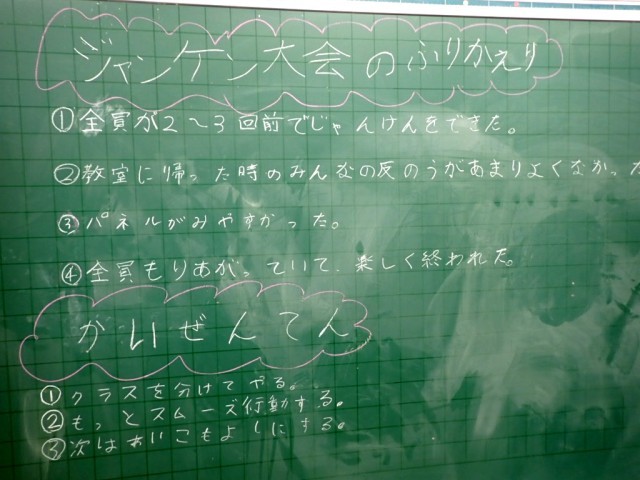 ジャンケン大会のふりかえり
①全員が2〜3回前でじゃんけんをできた。
②教室に帰った時のみんなの反のうがあまりよくなかった
③パネルがみやすかった。
④全員もりあがっていて、楽しく終われた。
かいぜんてん
①クラスを分けてやる。
②もっとスムーズ行動する。
③次はあいこもよしにする。